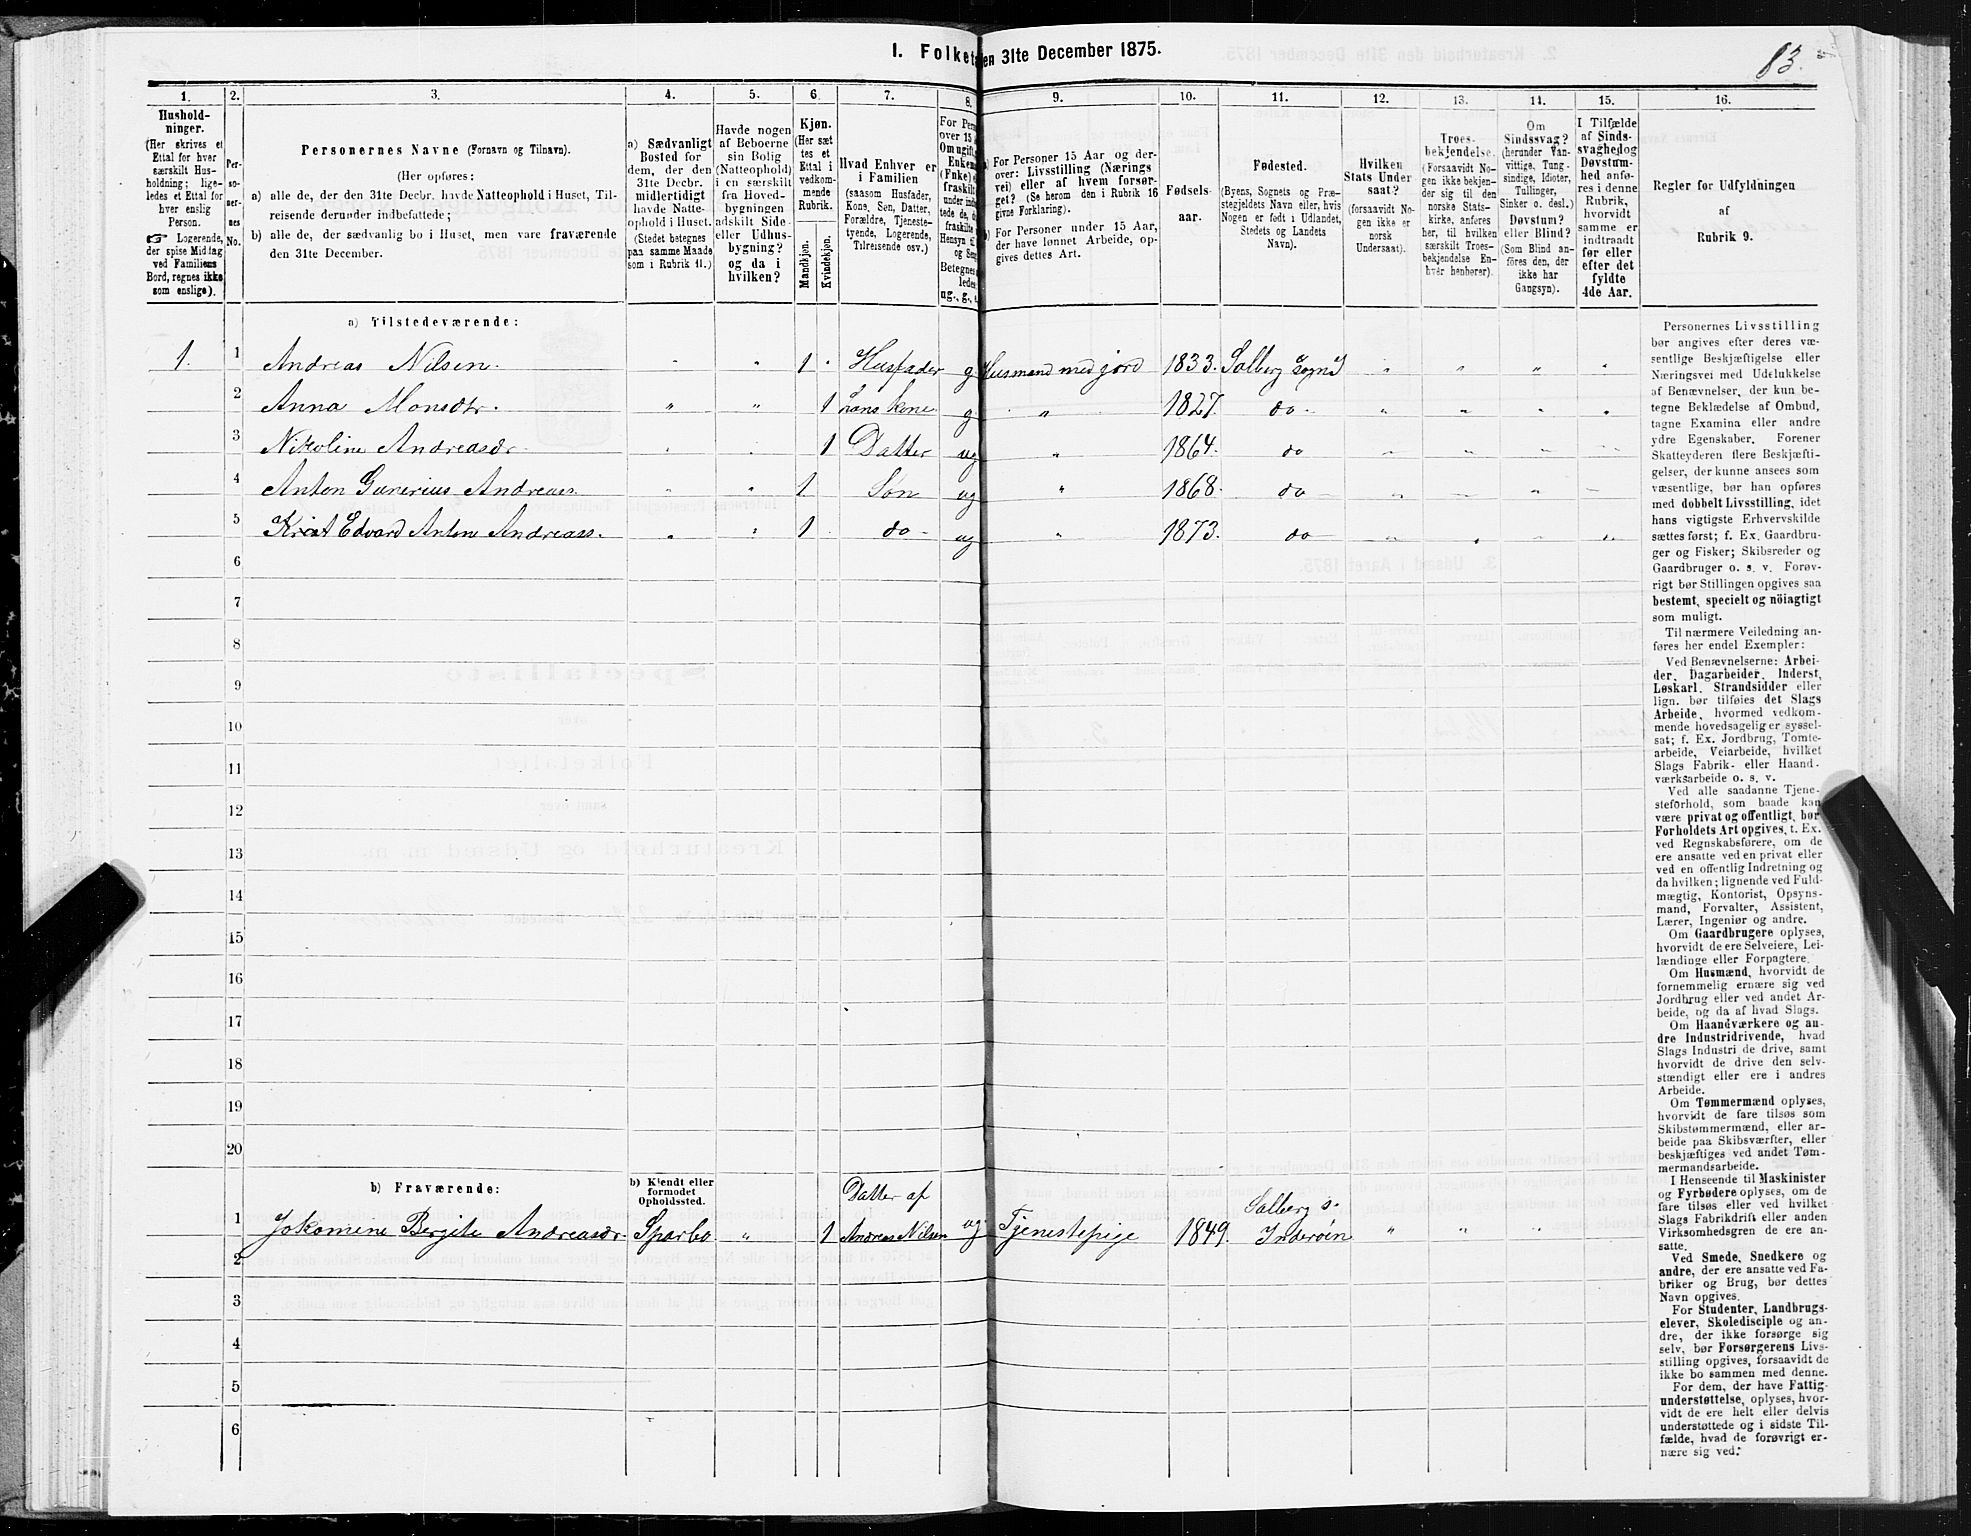 I. Folketa en 31te December 1875.
83.
1.
Hushold-
ninger.
(Her skrives et
Ettal for hver
særskilt Hus-
holdning; lige-
ledes et Ettal for
hver enslig
Person.
☞ Logerende,
der spise Middag
ved Familiens
Bord, regnes ikke
som enslige).
2.
Per-
so-
ner-
nes
No.
3.
Personernes Navne (Fornavn og Tilnavn).
(Her opføres:
a) alle de, der den 31te Decbr. havde Natteophold i Huset, Til-
reisende derunder indbefattede;
b) alle de, der sædvanlig bo i Huset, men vare fraværende
den 31te December.
4.
a) Sædvanligt
Bosted for
dem, der den
31te Decbr.
midlertidigt
havde Natte-
ophold i Huset.
(Stedet betegnes
paa samme Maade
som i Rubrik 11.)
5.
Havde nogen
af Beboerne
sin Bolig
(Natteophold)
i en særskilt
fra Hoved-
bygningen
adskilt Side-
eller Udhus-
bygning?
og da i
hvilken?
6.
Kjøn.
(Her sæt
tes et
Ettal i
vedkom-
mende
Rubrik.
Mandkjøn.
Kvindekjøn.
7.
Hvad Enhver er
i Familien
(saasom Husfader,
Kone, Søn, Datter,
Forældre, Tjeneste-
tyende, Logerende,
Tilreisende osv.)
8.
For Pers
over 15
Om ugift,
Enke
(Fnke)
fraskilt
under ind
tede de, d
fraskilte
Hensyn ti
og Sen
Betegnes
ledes
ug., g.,
9.
a) For Personer 15 Aar og der-
over: Livsstilling (Nærings
vei) eller af hvem forsør-
get? (Se herom den i Rubrik 16
givne Forklaring).
b) For Personer under 15 Aar,
der have lønnet Arbeide, op-
gives dettes Art.
10.
Fødsels-
aar.
11.
Fødested.
(Byens, Sognets og Præ-
stegjeldets Navn eller, hvis
Nogen er født i Udlandet,
Stedets og Landets
Navn).
12.
Hvilken
Stats Under
saat?
(forsaavidt No-
gen ikke er
norsk
Undersaat).
13.
Troes-
bekjendelse.
(Forsaavidt No-
gen ikke bekjen-
der sig til den
norske Stats-
kirke, anføres
her, til hvilken
særskilt Troes-
bekjendelse En-
hver henhører).
14.
Om
Sindssvag?
(herunder Van-
vittige, Tung-
sindige, Idioter,
Tullinger,
Sinker o. desl.)
Døvstum?
eller Blind?
(Som Blind an-
føres den, der
ikke har
Gangsyn).
15.
I Tilfælde
af Sinds-
svaghed og
Døvstum-
hed anfø-
res i denne
Rubrik,
hvorvidt
samme er
indtraadt
før eller
efter det
fyldte
4de Aar.
16.
Regler for Udfyldningen
af
Rubrik 9.
a) Tilstedeværende:
1. 1 Andreas Nilsen. " " 1 " Husfader g Husmand med jord 1833. Salberg sogn " " " "
2 Anna Monsdtr. " " 1 hans kone. g " 1827. do " " " "
3 Nikoline Andreasdr " " 1 Datter ug " 1864. do " " " "
4 Anton Andreas. " " 1 Søn ug " 1868. do " " " "
5 Edvard Anton Andreass. " " 1 do ug " 1873. do " " " "
6
7
8
9
10
11
12
13
14
15
16
17
18
19
20
b) Fraværende:
b) Kjendt eller
formodet
Opholdssted.
Datter af
Salberg s.
1 Jokomine Bergite Andreasdr. Sparbo " 1 Andreas Nilsen ug. Tjenestepige 1849. Inderøen " " "
2
3
4
5
6
Personernes Livsstilling
bør angives efter deres væ-
sentlige Beskjæftigelse eller
Næringsvei med Udelukkelse
af Benævnelser, der kun be-
tegne Beklædelse af Ombud,
tagne Examina eller andre
ydre Egenskaber. Forener
Skatteyderen flere Beskjæfti-
gelser, der kunne ansees som
væsentlige, bør han opføres
med dobbelt Livsstilling, idet
hans vigtigste Erhvervskilde
sættes først; f. Ex. Gaardbru-
ger og Fisker; Skibsreder og
Gaardbruger o. s. v. Forøv-
rigt bør Stillingen opgives saa
bestemt, specielt og nöiagtigt
som muligt.
Til nærmere Veiledning an-
føres her endel Exempler:
Ved Benævnelserne: Arbei-
der, Dagarbeider, Inderst,
Løskarl, Strandsidder eller
lign. bør tilføies det Slags
Arbeide, hvormed vedkom-
mende hovedsagelig er syssel-
sat; f. Ex. Jordbrug, Tomte-
arbeide, Veiarbeide, hvilket
Slags Fabrik- eller Haand-
værksarbeide o. s. v.
Ved alle saadanne Tjene-
steforhold, som baade kan
være privat og offentligt, bør
Forholdets Art opgives, t. Ex.
ved Regnskabsførere, om de
ere ansatte ved en privat eller
ved en offentlig Indretning og
da hvilken; lignende ved Fuld-
mægtig, Kontorist, Opsyns-
mand, Forvalter, Assistent,
Lærer, Ingeniør og andre.
Om Gaardbrugere oplyses,
hvorvidt de ere Selveiere, Lei-
lændinge eller Forpagtere.
Om Husmænd, hvorvidt de
fornemmelig ernære sig ved
Jordbrug eller ved andet Ar-
beide, og da af hvad Slags.
Om Haandværkere og an-
dre Industridrivende, hvad
Slags Industri de drive, samt
hvorvidt de drive den selv-
stændigt eller ere i andres
Arbeide.
Om Tømmermænd oplyses,
hvorvidt de fare tilsøs som
Skibstømmermænd, eller ar-
beide paa Skibsværfter, eller
beskjæftiges ved andet Tøm-
mermandsarbeide.
I Henseende til Maskinister
og Fyrbødere oplyses, om de
fare tilsøs eller ved hvilket
Slags Fabrikdrift eller anden
Virksomhedsgren de ere an-
satte.
Ved Smede, Snedkere og
andre, der ere ansatte ved Fa-
briker og Brug, bør dettes
Navn opgives.
For Studenter, Landbrugs-
elever, Skoledisciple og an-
dre, der ikke forsørge sig
selv, bør Forsørgerens Livs-
stilling opgives, forsaavidt de
ikke bo sammen med denne.
For dem, der have Fattig-
understøttelse, oplyses, hvor-
vidt de ere helt eller delvis
understøttede og i sidste Til-
fælde, hvad de forøvrigt er-
nære sig ved.